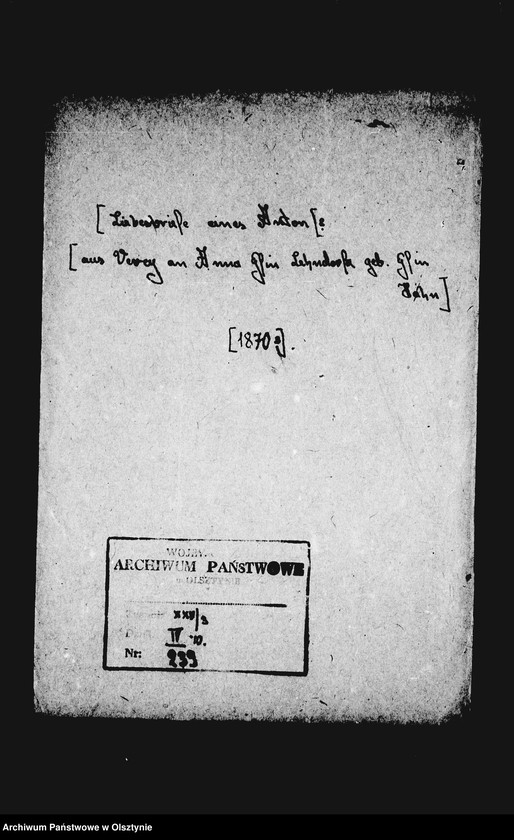 [Liebesbriefe eines Anton [?
[aus Vevey an Anna Gfin Lehndorff geb. Gfin
Hahn]
[1870?].
WOJEW.
ARCHIWUM PAŃSTWOWE
w OLSZTYNIE
XXV/2
IV 10.
Nr: 239
Archiwum Państwowe w Olsztynie